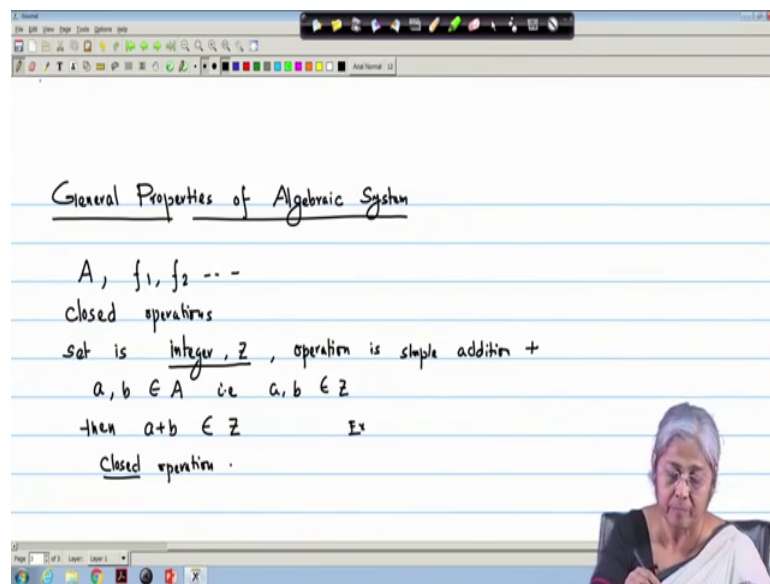 Journal
File Edit View Page Tools Options Help
Arial Normal 12
General Properties of Algebraic System
A, f₁, f₂ ---
Closed operations
set is integer, Z, operation is simple addition +
a, b ∈ A i.e a, b ∈ Z
then a+b ∈ Z Ex
Closed operation.
Page 3 of 3 Layer: Layer 1